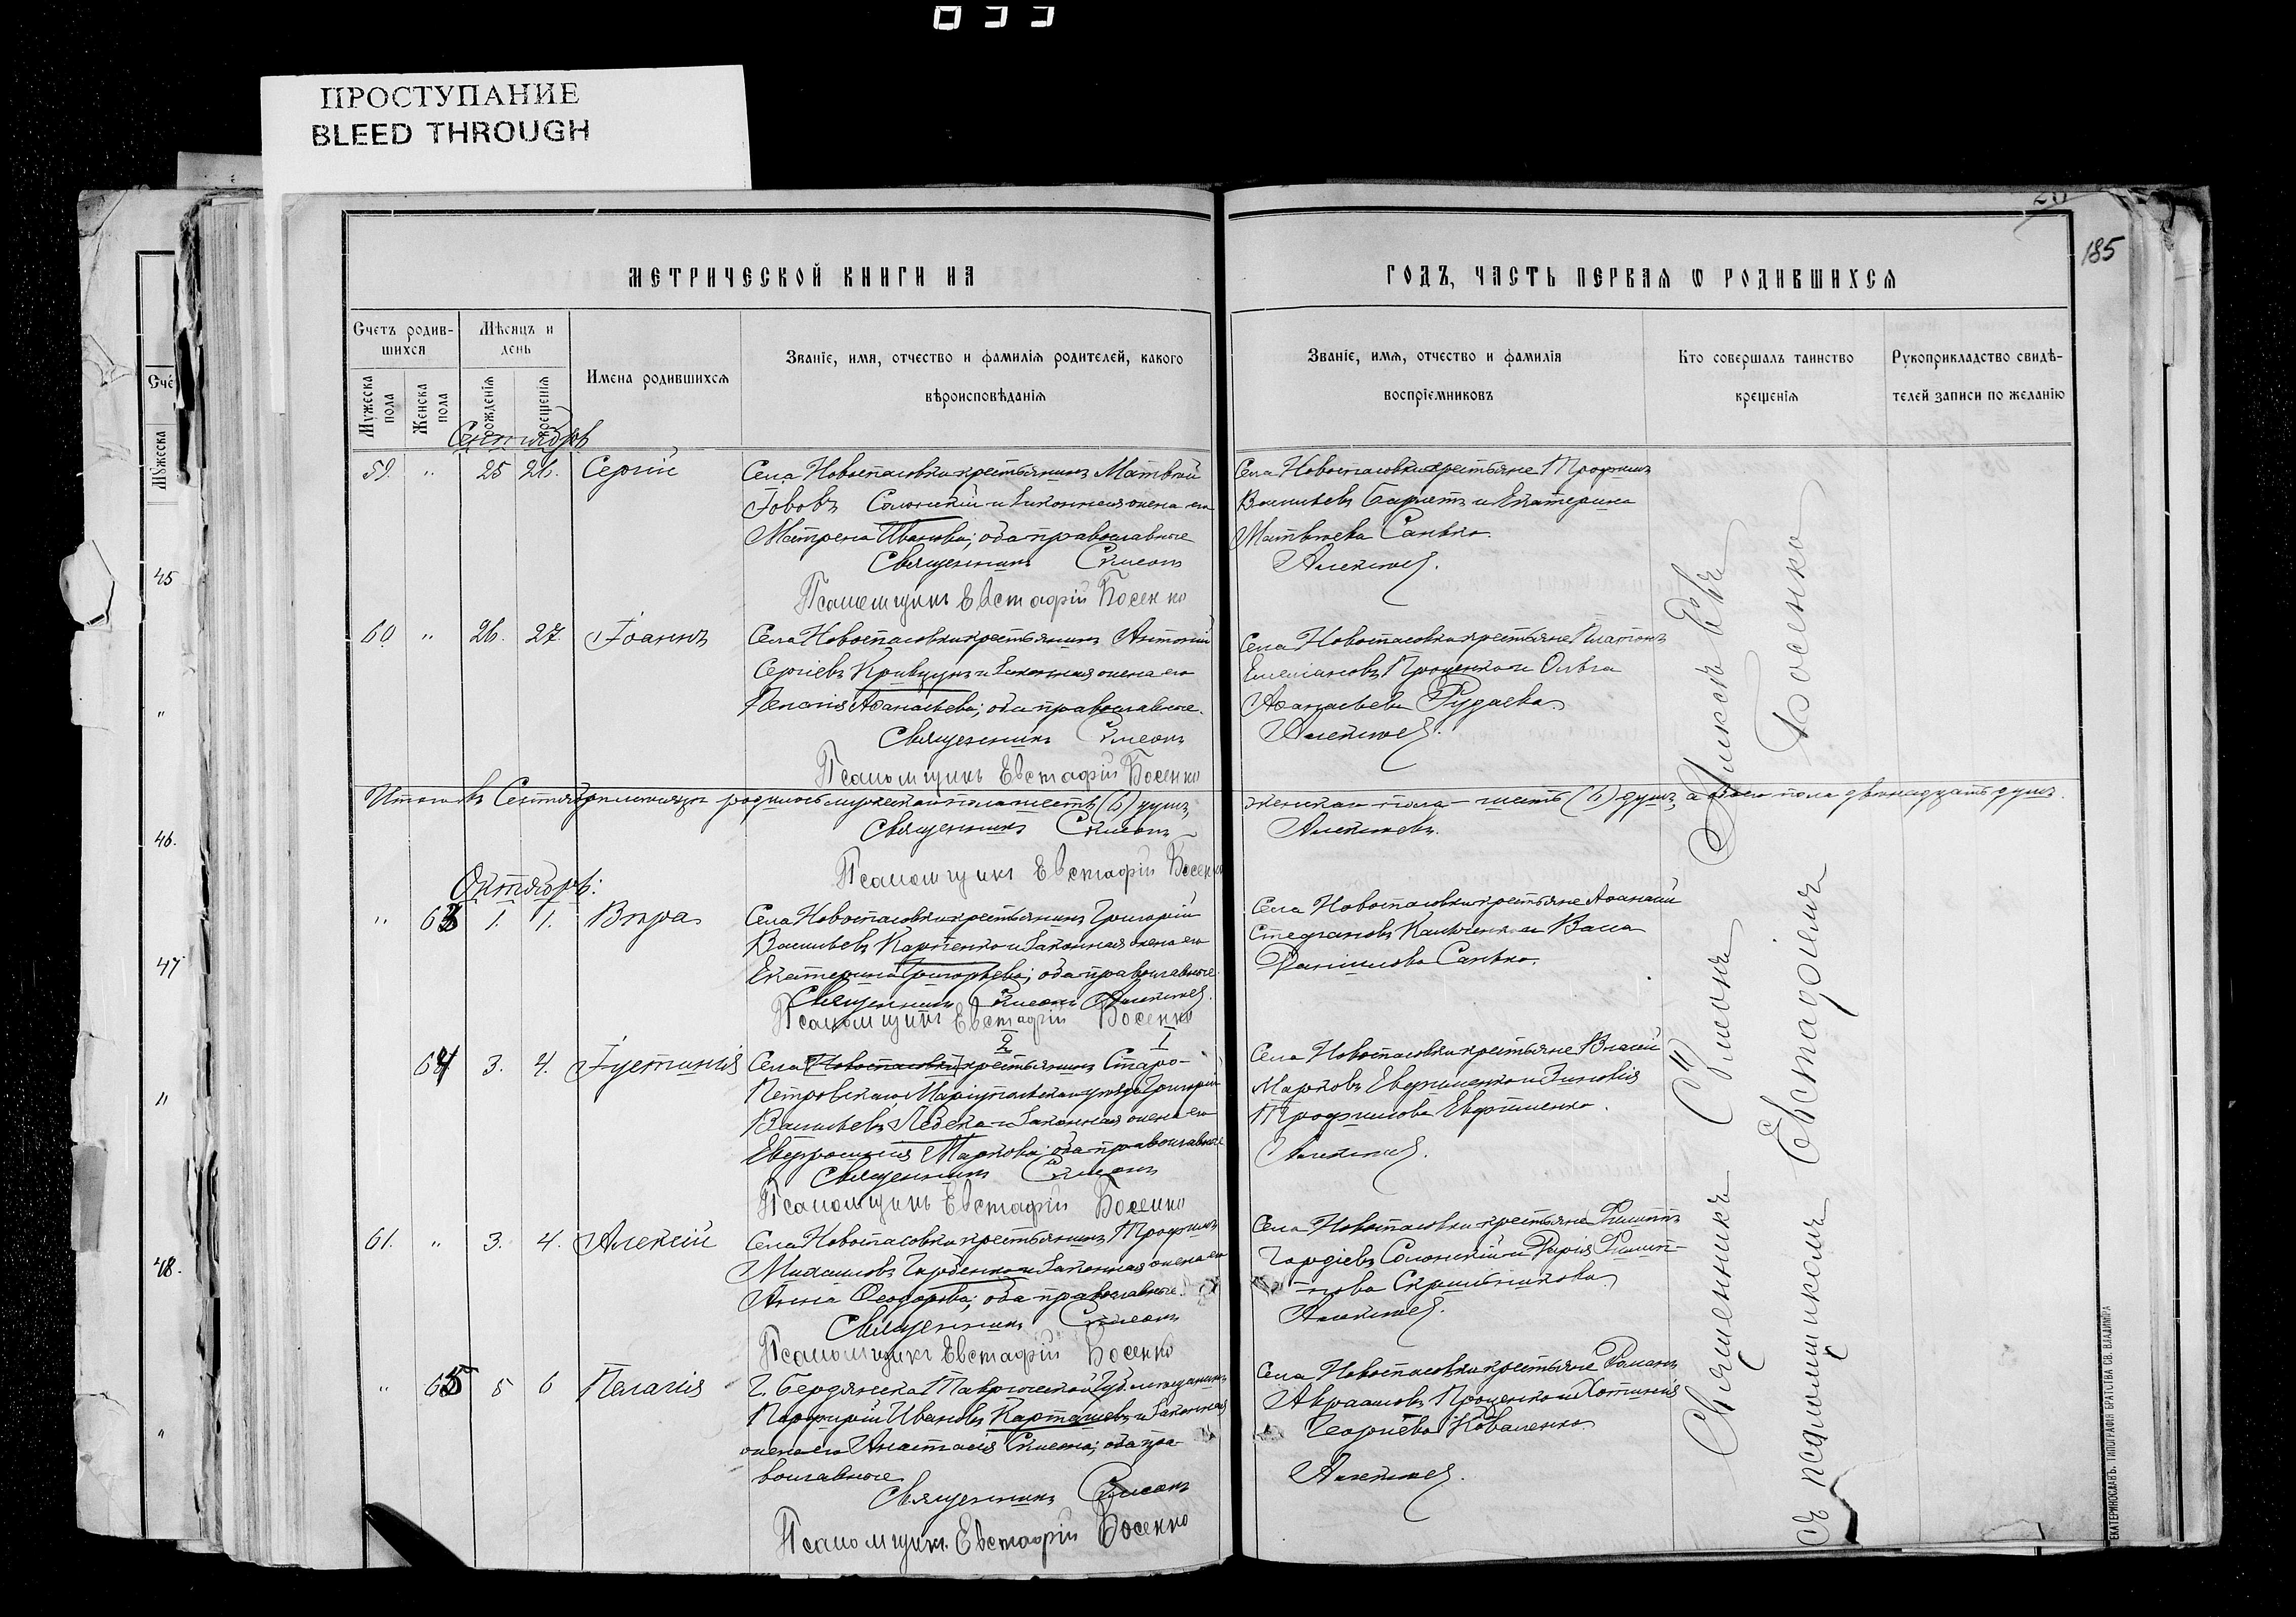 ПРОСТУПАНИЕ
BLEED THROUGH
185
МЕТРИЧЕСКОЙ КНИГИ НА
ГОДЪ, ЧАСТЬ ПЕРВАЯ Ѡ РОДИВШИХСЯ
Счетъ родив-
шихся
Мѣсяцъ и
день
Мужеска
пола
Женска
пола
рожденія
крещенія
Имена родившихся
Званіе, имя, отчество и фамилія родителей, какого
вѣроисповѣданія
Званіе, имя, отчество и фамилія
воспріемниковъ
Кто совершалъ таинство
крещенія
Рукоприкладство свидѣ-
телей записи по желанію
Сентябрь
59. " 25 26. Сергій
Села Новоспасовки крестьянинъ Матвѣй
Іововъ Солонскій и законная жена его
Матрена Иванова; оба православные
Священникъ Сѵмеонъ
Псаломщикъ Евстафій Босенко
Села Новоспасовки крестьяне Трофимъ
Васильевъ и Екатерина
Матвѣева Санько.
Алексѣев.
60 " 26. 27. Іоаннъ
Села Новоспасовки крестьянинъ Антоній
Сергіевъ Кривцунъ и законная жена его
Пелагія Аѳанасьева; оба православные.
Священникъ Сѵмеонъ
Псаломщикъ Евстафій Босенко
Села Новоспасовки крестьяне Платонъ
Емеліановъ Проценко и Ольга
Аѳанасьева Рудаева
Алексѣев.
Итого въ Сентябрѣ мѣсяцѣ родилось мужескаго пола шесть (6) душъ,
женскаго пола – шесть (6) душъ, а обоего пола двѣнадцать душъ.
Священникъ Сѵмеонъ
Алексѣевъ.
Псаломщикъ Евстафій Босенко
Октябрь:
" 63 1. 1. Вѣра
Села Новоспасовки крестьянинъ Григорій
Васильевъ Карпенко и законная жена его
Екатерина Григорьева; оба православные.
Священникъ Сѵмеонъ Алексѣев.
Псаломщикъ Евстафій Босенко
Села Новоспасовки крестьяне Аѳанасій
Стефановъ Каличенко и Васса
Даніилова Санько.
2 1
64 3. 4. Іустинія
Села Новоспасовки крестьянинъ Старо-
Петровскаго Маріупольскаго уѣзда Григорій
Васильевъ Лебека и законная жена его
Евфросинія Маркова; оба православные
Священникъ Сѵмеонъ
Псаломщикъ Евстафій Босенко
Села Новоспасовки крестьяне Власій
Марковъ Евфименко и Зиновія
Трофимова Евфименко.
Алексѣев.
61. " 3. 4. Алексій
Села Новоспасовки крестьянинъ Трофимъ
Михаиловъ Горбенко и законная жена его
Анна Ѳеодорова; оба православные.
Священникъ Сѵмеонъ
Псаломщикъ Евстафій Босенко
Села Новоспасовки крестьяне Филиппъ
Гордіевъ Солонскій и Дарія Филип-
пова Скрыльникова
Алексѣев.
" 65 5 6 Пелагія
Г. Бердянска Таврической Губ. мѣщанинъ
Порфирій Ивановъ Карташевъ и законная
жена его Анастасія Сѵмеонова; оба пра-
вославные
Священникъ Сѵмеонъ
Псаломщикъ Евстафій Босенко
Села Новоспасовки крестьяне Романъ
Авраамовъ Проценко и Хотинія
Георгіева Коваленко
Алексѣев.
Священникъ Сѵмеонъ Алексѣевъ
съ псаломщикомъ Евстафіемъ Босенко
ЕКАТЕРИНОСЛАВЪ. ТИПОГРАФІЯ БРАТСТВА СВ. ВЛАДИМІРА
Мужеска
45
"
46.
47
"
48.
"